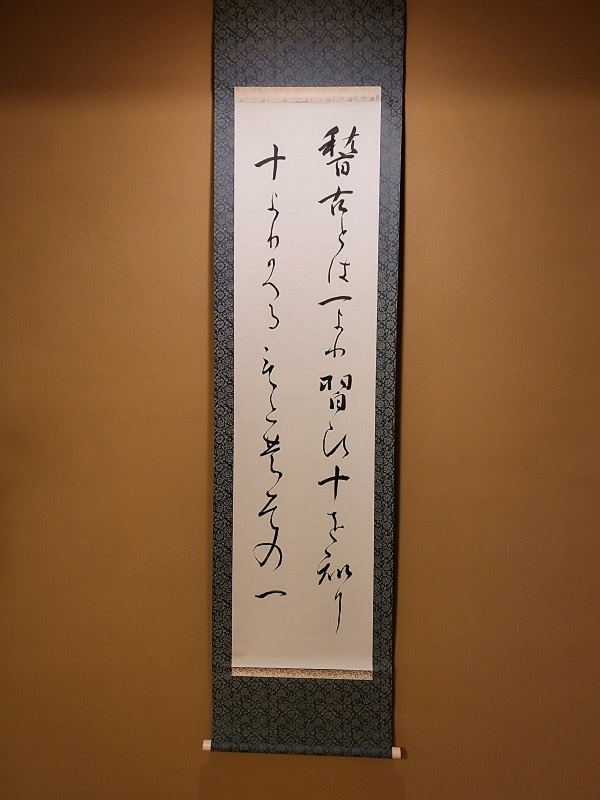 稽古とは一より習ひ十を知り
十よりかへるもとのその一